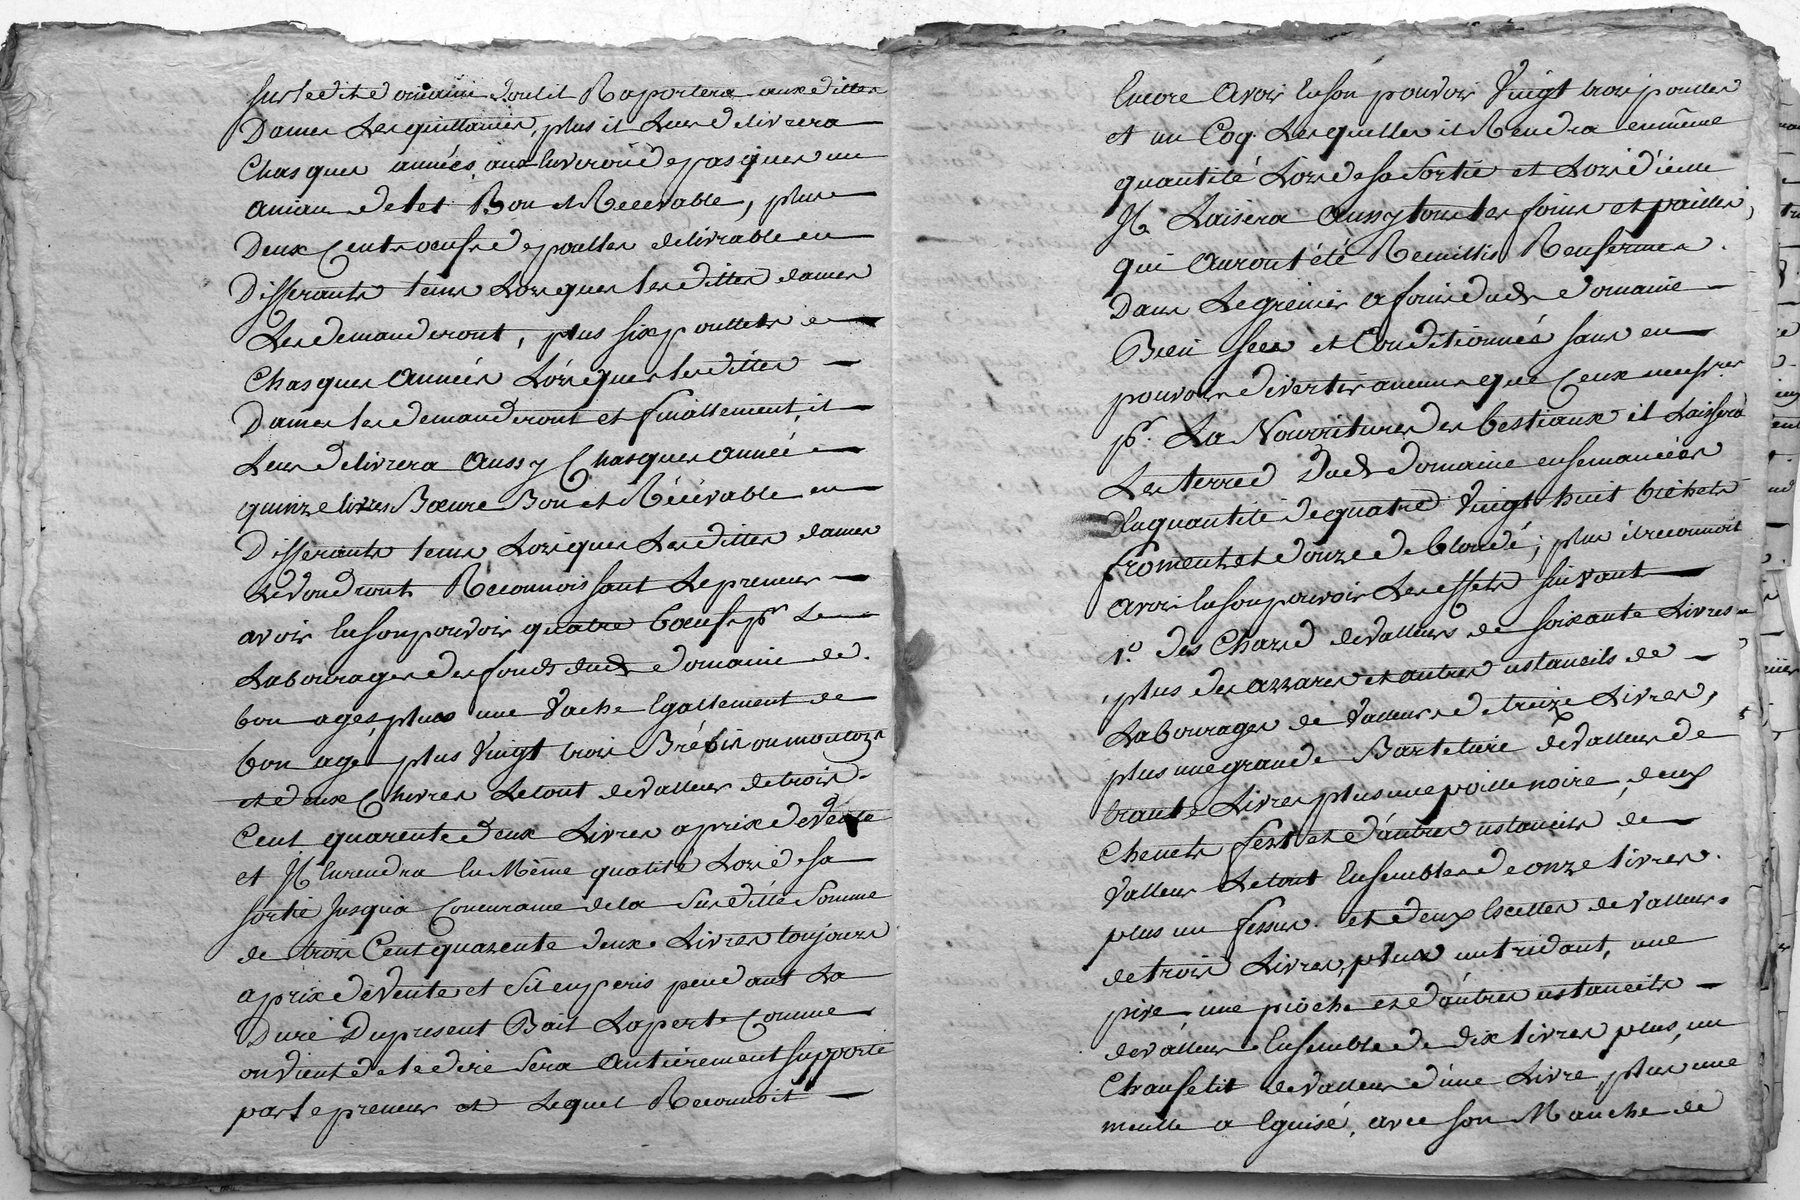 Sur ledit domaine dont il Raportera auxdittes
Dames Les quittances, plus il Leur delivrera
Chasques années aux Environ de pasques un
aniau de let Bon et Recevable, plus
Deux Cents oeufs de poulles delivrable en
Differants tems Lorsques lesdittes dames
Les demanderont, plus six poullets
Chasques Années Lorsques lesdittes
Dames les demanderont et finallement, il
Leur delivrera Aussy Chasques année
quinze livres Bœure Bon et Récévable en
Differants tems Lorsques Lesdittes dames
Le voudront Reconnoissant Le preneur
avoir En son pouvoir quatre bœufs pr Le
Labourages des fonds dud domaine de
bon ages, plus une Vache Egallement de
bon age, plus Vingt trois Brébis ou moutons
et deux Chevres Le tout de valleur de trois
Cent quarente deux Livres a prix de Vente
et Il En rendra En Même qualité Lors de sa
sortie Jusqu'a Concurance de la Susditte Somme
de trois Cent quarente deux Livres toujours
a prix de Vente et S'il en peris pendant La
Duré Du present Bail La perte Comme
on vient de le dire Sera Antiérement supporté
par le preneur et Lequel Reconnoit
Encore Avoir En son pouvoir Vingt trois poulles
et un Coq Lesquelles il Rendra en même
quantité Lors de sa Sortie et Lors d'icelle
Il Laisera Aussy tous les foins et pailles,
qui Auront été Recuillis Renfermés
Dans Le grenier a foin dud domaine
Bien secs et Conditionnés sans en
pouvoir divertir aucuns que Ceux necessres
pr. La Nourritures des bestiaux il Laissera
Les terres Dud domaine ensemancées
En quantité de quatre Vingt huit bichets
froment et douze de blondé; plus il reconnoit
avoir En son pouvoir Les effets suivant
1.° des Chars de valleurs de soixante Livres
plus des arrares et autres ustancils de
Labourages de Valleurs de treize Livres,
plus une grande Bartelaire de valleur de
trante Livres plus une poille noire, deux
Chenets fert et d'autres ustancils de
Valleur Le tout Ensembles de onze livres
plus un fessus et deux Escelles de valleurs
de trois Livres, plus un tridant, une
pive une pioche et d'autres ustancils
de valleur Ensemble de dix livres plus, un
Chaufelit de valleur d'une Livre, plus une
meulle a Eguisé, avec son Manche de